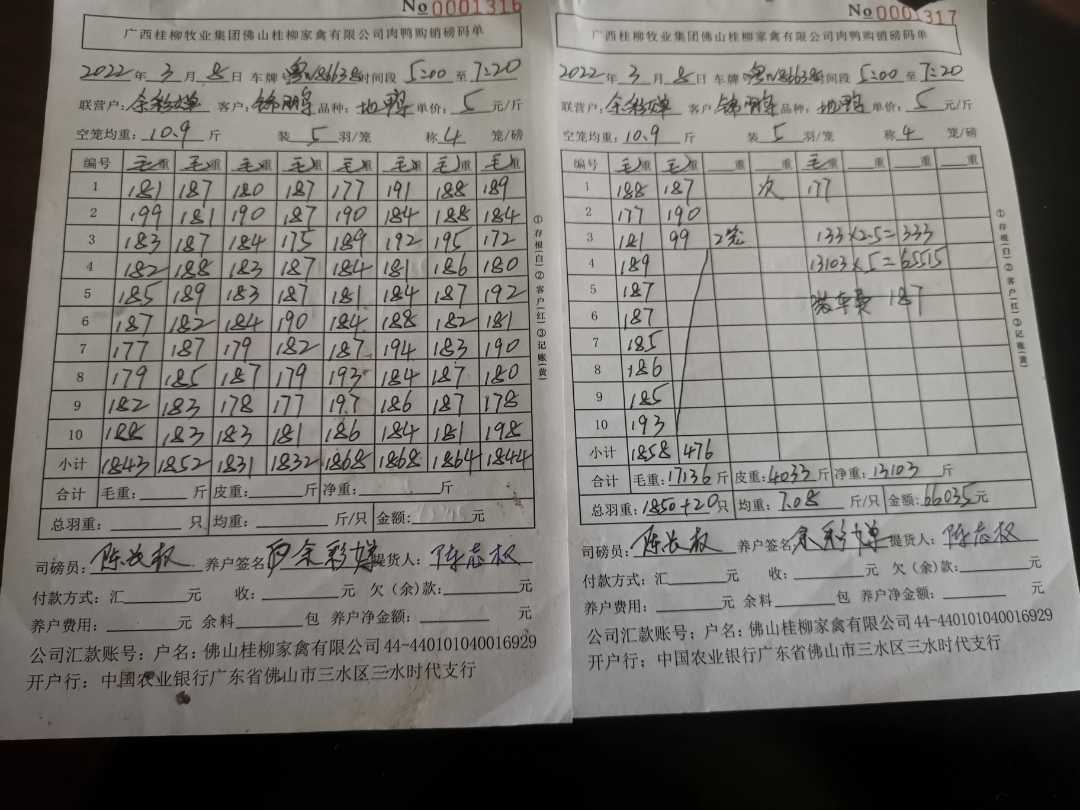 No 0001316
广西桂柳牧业集团佛山桂柳家禽有限公司肉鸭购销磅码单
2022年 3 月 8 日 车牌 粤W86638 时间段 5:00 至 7:20
联营户: 余彩婵 客户: 锦鹏 品种: 地鸭 单价: 5 元/斤
空笼均重: 10.9 斤 装 5 羽/笼 称 4 笼/磅
编号 毛重 毛重 毛重 毛重 毛重 毛重 毛重 毛重
1 181 187 180 187 177 191 188 189
2 199 181 190 187 190 184 188 184
3 183 187 184 175 189 192 195 172
4 182 188 183 187 184 181 186 180
5 185 189 183 187 181 184 187 192
6 187 182 184 190 184 188 182 181
7 177 187 179 182 187 194 183 190
8 179 185 187 179 193 184 187 180
9 182 183 178 177 197 186 187 178
10 188 183 183 181 186 184 181 198
小计 1843 1852 1831 1832 1868 1868 1864 1844
合计 毛重: 斤 皮重: 斤 净重: 斤
总羽重: 只 均重: 斤/只 金额: 元
司磅员: 陈长权 养户签名 余彩婵 提货人: 陈志权
付款方式: 汇 元 收: 元 欠(余)款: 元
养户费用: 元 余料 包 养户净金额: 元
公司汇款账号: 户名: 佛山桂柳家禽有限公司 44-440101040016929
开户行: 中国农业银行广东省佛山市三水区三水时代支行
①存根(白)②客户(红)③记账(黄)
No 0001317
广西桂柳牧业集团佛山桂柳家禽有限公司肉鸭购销磅码单
2022年 3 月 8 日 车牌 粤W86638 时间段 5:00 至 7:20
联营户: 余彩婵 客户: 锦鹏 品种: 地鸭 单价: 5 元/斤
空笼均重: 10.9 斤 装 5 羽/笼 称 4 笼/磅
编号 毛重 毛重 重 重 毛重 重 重 重
1 188 187 次 177
2 177 190
3 181 99 2笼 133×2.5=333
4 189 13103×5=65515
5 187
6 187 装车费 187
7 185
8 186
9 185
10 193
小计 1858 476
合计 毛重: 17136 斤 皮重: 4033 斤 净重: 13103 斤
总羽重: 1850+20 只 均重: 7.08 斤/只 金额: 66035 元
司磅员: 陈长权 养户签名 余彩婵 提货人: 陈志权
付款方式: 汇 元 收: 元 欠(余)款: 元
养户费用: 元 余料 包 养户净金额: 元
公司汇款账号: 户名: 佛山桂柳家禽有限公司 44-440101040016929
开户行: 中国农业银行广东省佛山市三水区三水时代支行
①存根(白)②客户(红)③记账(黄)